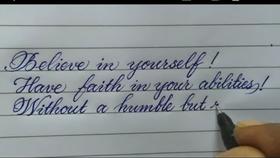 Believe in yourself!
Have faith in your abilities!
Without a humble but